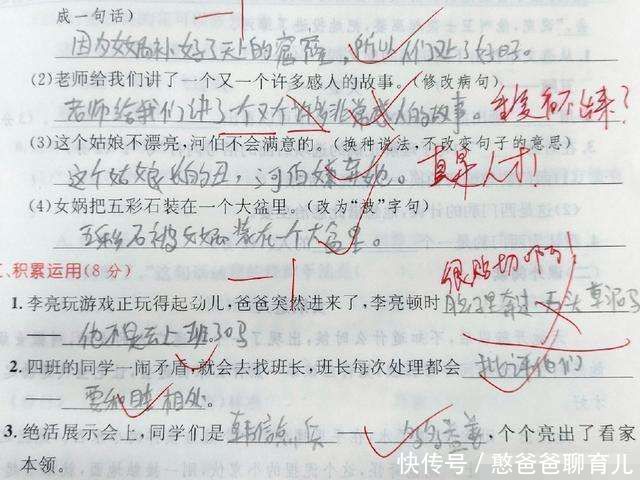 成一句话)
因为女娲补好了天上的窟窿,所以人们过上了好日子。
(2)老师给我们讲了一个又一个许多感人的故事。(修改病句)
老师给我们讲了一个又一个许多非常感人的故事。 重复看不出来?
(3)这个姑娘不漂亮,河伯不会满意的。(换种说法,不改变句子的意思)
这个姑娘长的丑,河伯嫌弃她。 真是人才!
(4)女娲把五彩石装在一个大盆里。(改为“被”字句)
五彩石被女娲装在一个大盆里。
二、积累运用(8分) 很贴切啊!
1.李亮玩游戏正玩得起劲儿,爸爸突然进来了,李亮顿时心里奔过一万头草泥马
——他不是去上班了吗
2.四班的同学一闹矛盾,就会去找班长,班长每次处理都会批评他们
——要和睦相处。
3.绝活展示会上,同学们是韩信点兵——多多益善,个个亮出了看家
本领。
快传号/憨爸爸聊育儿